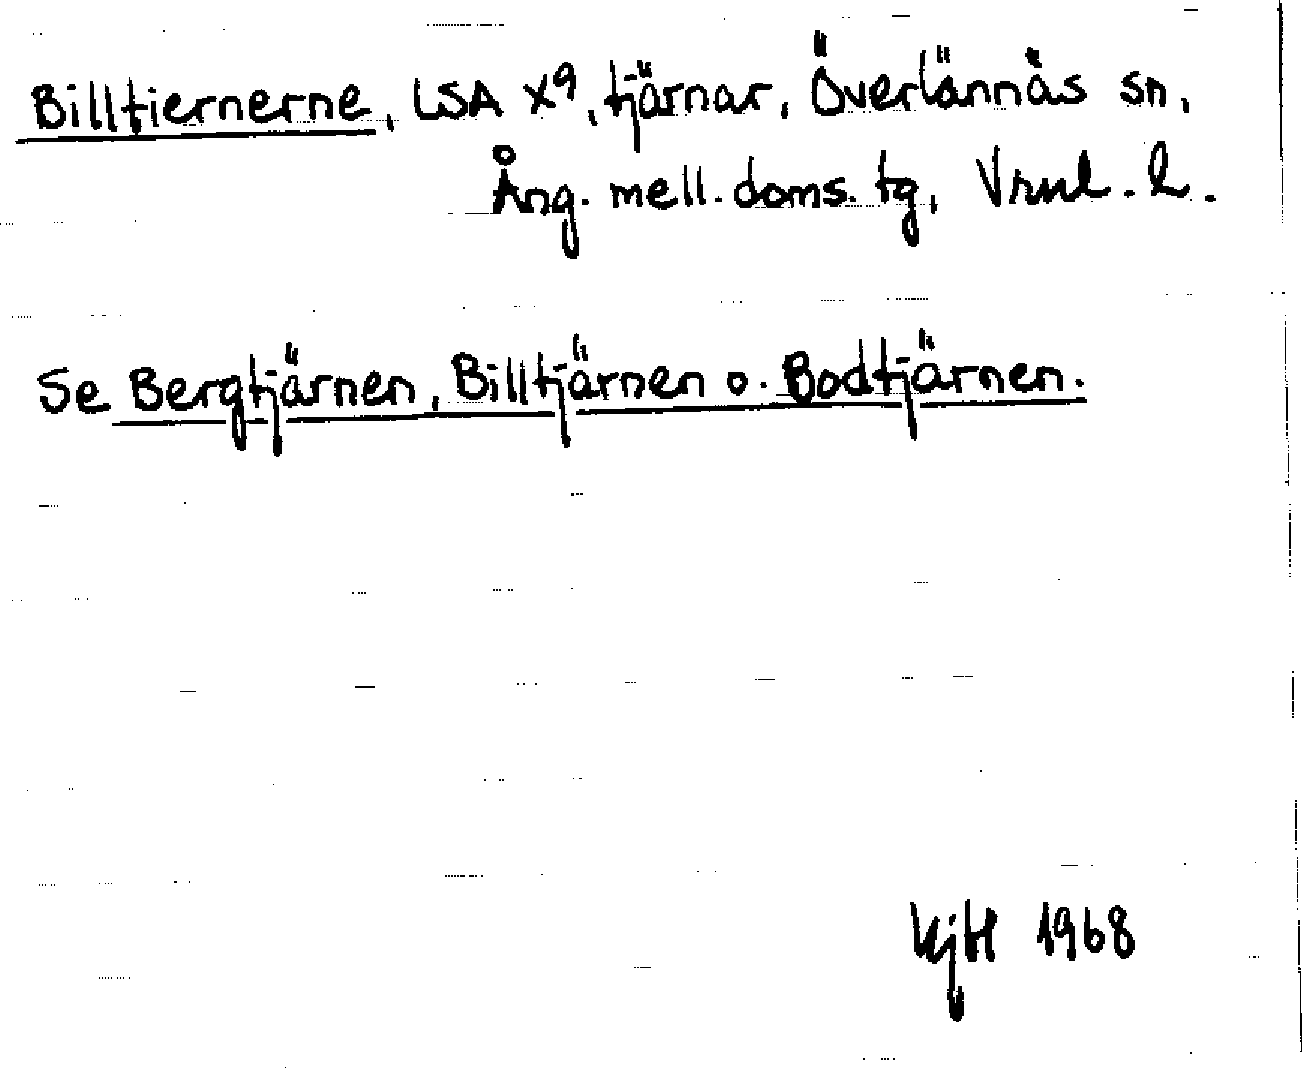 Billtiernerne, LSA X9, tjärnar, Överlännäs sn,
Ång. mell. doms. tg, Vrnl. l.
Se Bergtjärnen, Billtjärnen o. Bodtjärnen.
KjH 1968